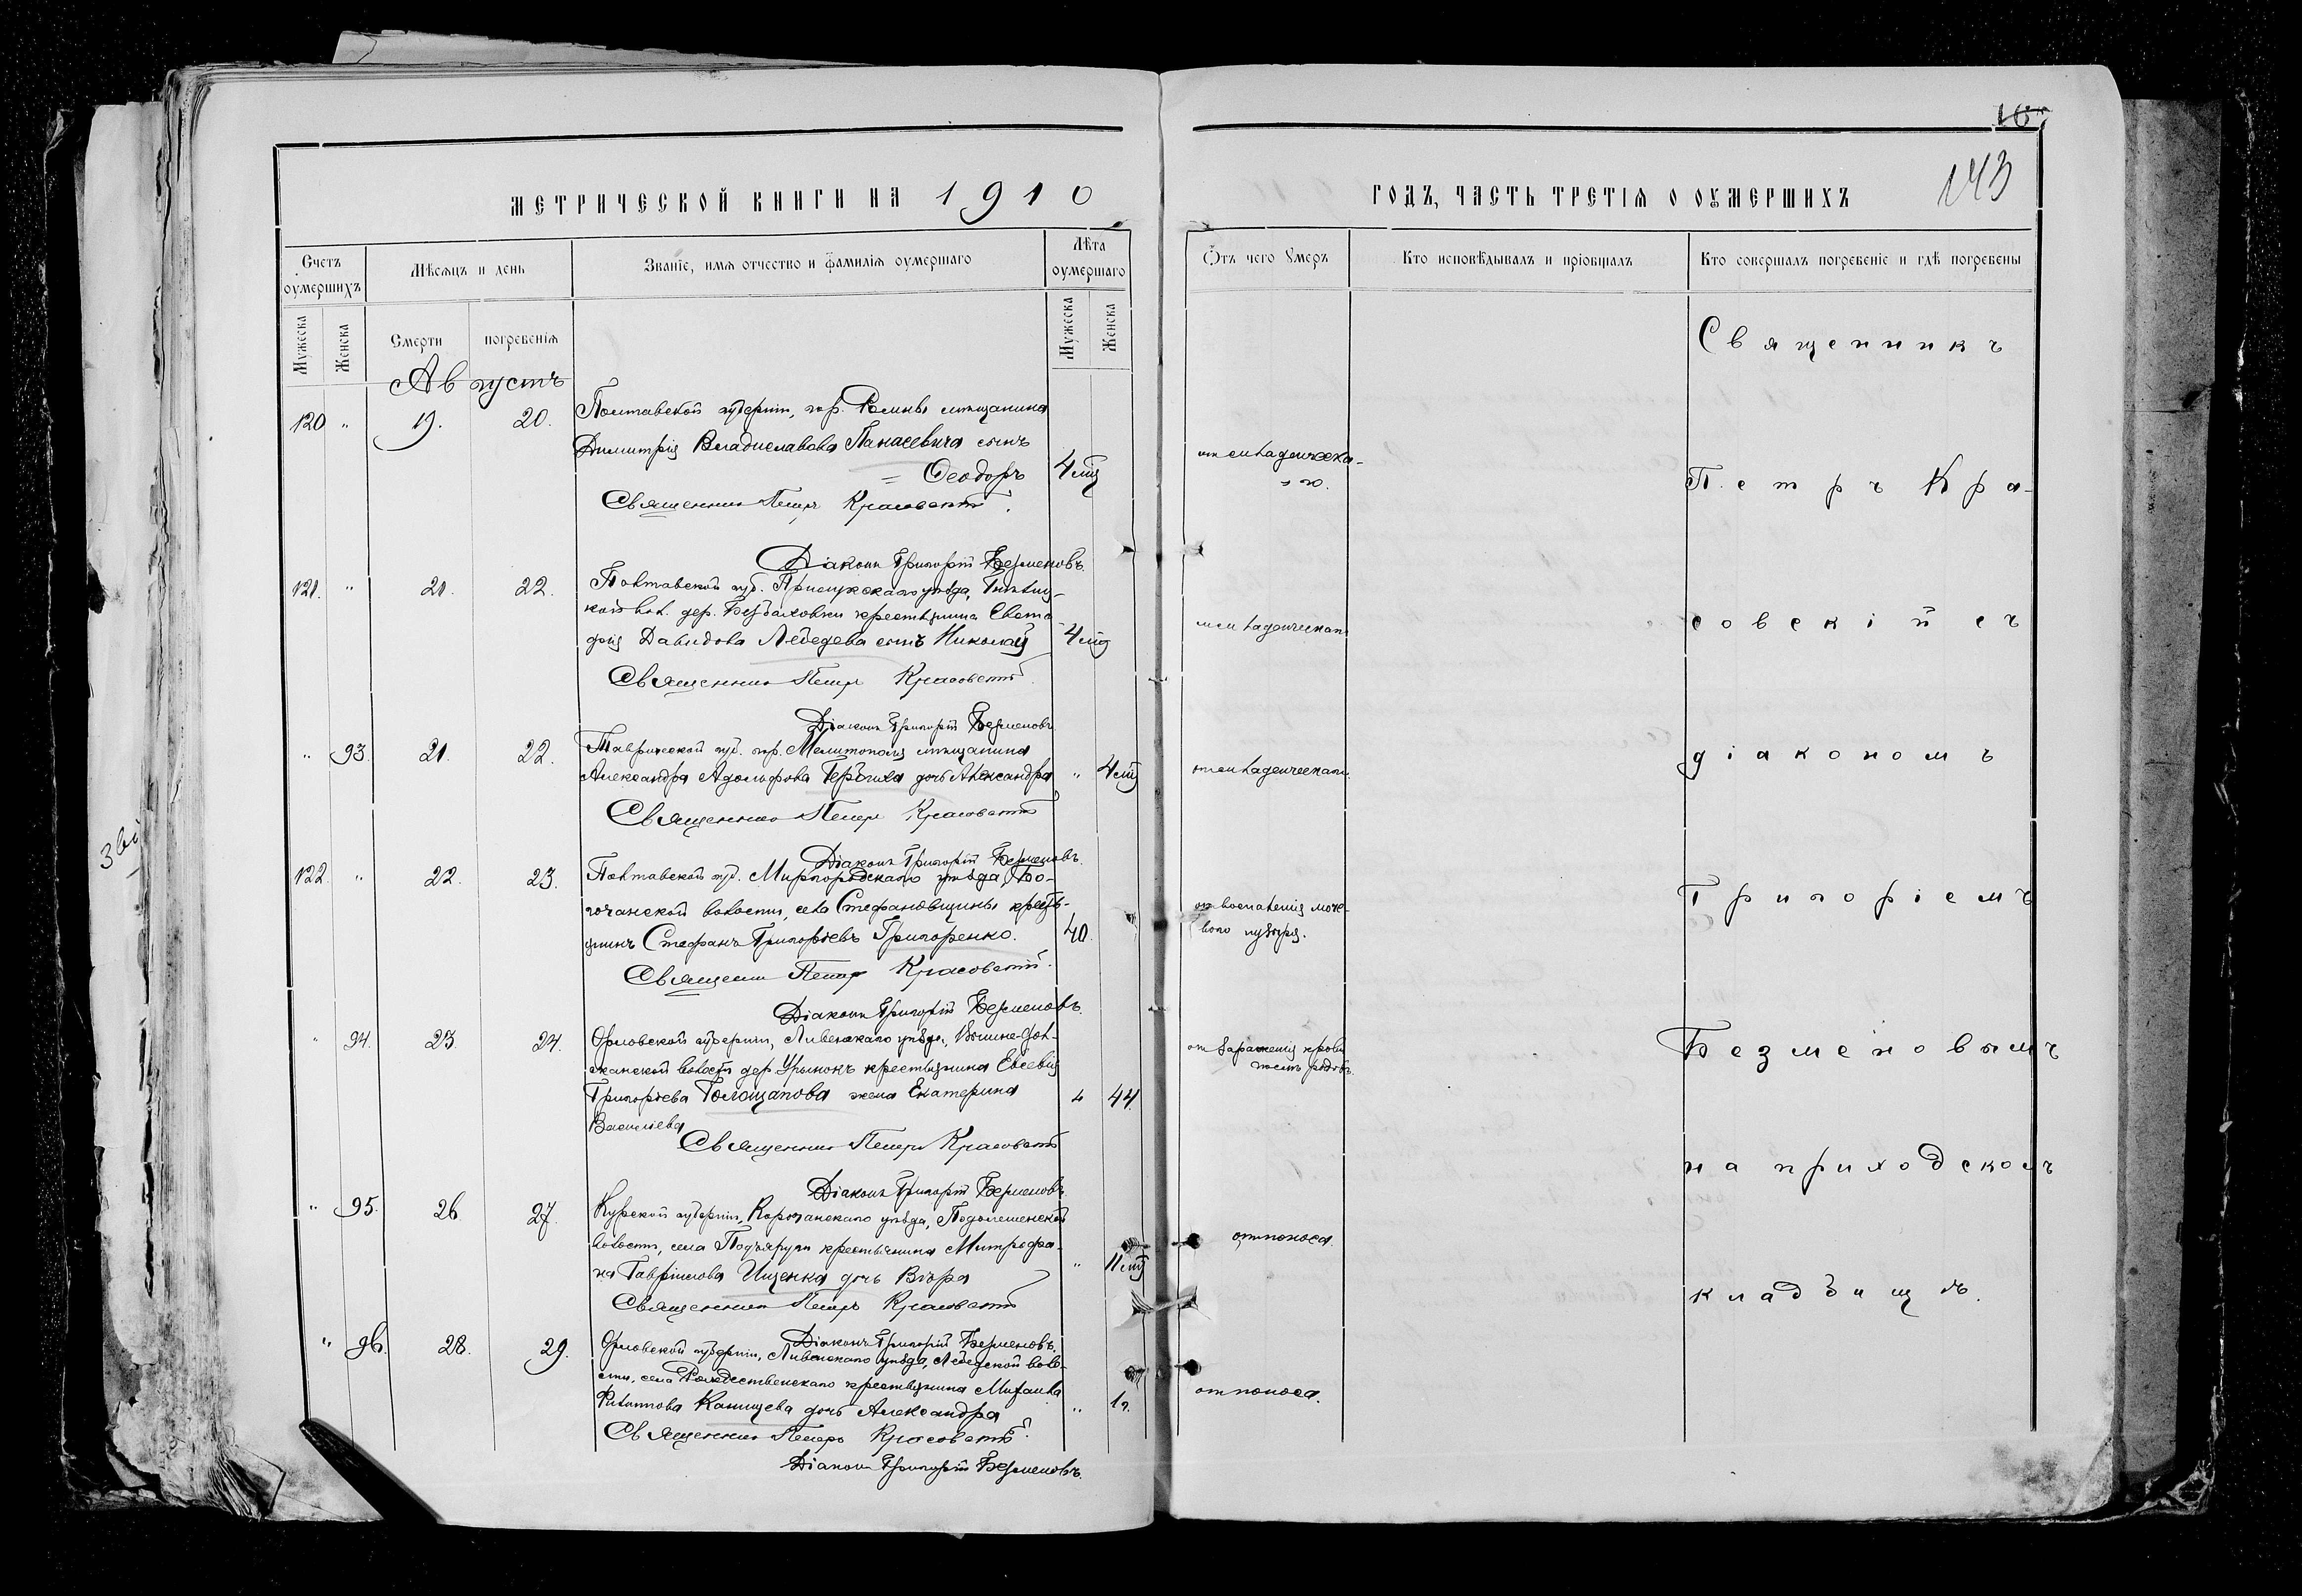 МЕТРИЧЕСКОЙ КНИГИ НА 1910
ГОДЪ, ЧАСТЬ ТРЕТІЯ О ОУМЕРШИХЪ
143
Счетъ оумершихъ
Мѣсяцъ и день
Званіе, имя отчество и фамилія оумершаго
Лѣта оумершаго
Отъ чего Умеръ
Кто исповѣдывалъ и пріобщалъ
Кто совершалъ погребеніе и гдѣ погребены
Мужеска
Женска
Смерти
погребенія
Мужеска
Женска
Августъ
120 " 19. 20.
Полтавской губерніи, гор. Ромны мѣщанина
Димитрія Владиславова Панасевича сынъ
Ѳеодоръ 4 мц
Священникъ Петръ Красовскій.
Діаконъ Григорій Безменовъ.
121. " 21. 22.
Полтавской губ. Прилукскаго уѣзда,
кой вол. дер. крестьянина
Давидова Лебедева сынъ Николай 4 мц
Священникъ Петръ Красовскій
Діаконъ Григорій Безменовъ
" 93. 21. 22.
Таврической губ. гор. Мелитополя мѣщанина
Александра Адольфова дочь Александра " 4 мц
Священникъ Петръ Красовскій
Діаконъ Григорій Безменовъ.
122. " 22. 23.
Полтавской губ. Миргородскаго уѣзда, Бо-
гочанской волости, села Стефановщины кресть-
янинъ Стефанъ Григорьевъ Григоренко. 40.
Священникъ Петръ Красовскій.
отъ воспаленія моче-
вого пузыря.
Діаконъ Григорій Безменовъ.
" 94. 23. 24.
Орловской губерніи, Ливенскаго уѣзда,
волости дер. крестьянина Евсевія
Григорьева Голощапова жена Екатерина " 44.
Васильева
Священникъ Петръ Красовскій
отъ зараженія крови
послѣ родовъ.
Діаконъ Григорій Безменовъ.
" 95. 26. 27.
Курской губерніи, Корочанскаго уѣзда,
волости, села Подъяруги крестьянина Митрофа-
на Гавріилова Ищенка дочь Вѣра " 11 мц
Священникъ Петръ Красовскій
отъ поноса.
Діаконъ Григорій Безменовъ.
" 96. 28. 29.
Орловской губерніи, Ливенскаго уѣзда, воло-
сти, села Рождественскаго крестьянина Михаила
Филиппова Канищева дочь Александра " 1 г.
Священникъ Петръ Красовскій.
Діаконъ Григорій Безменовъ.
отъ поноса.
Священникъ
Петръ Кра-
совскій съ
діакономъ
Григоріемъ
Безменовымъ
на приходскомъ
кладбищѣ.